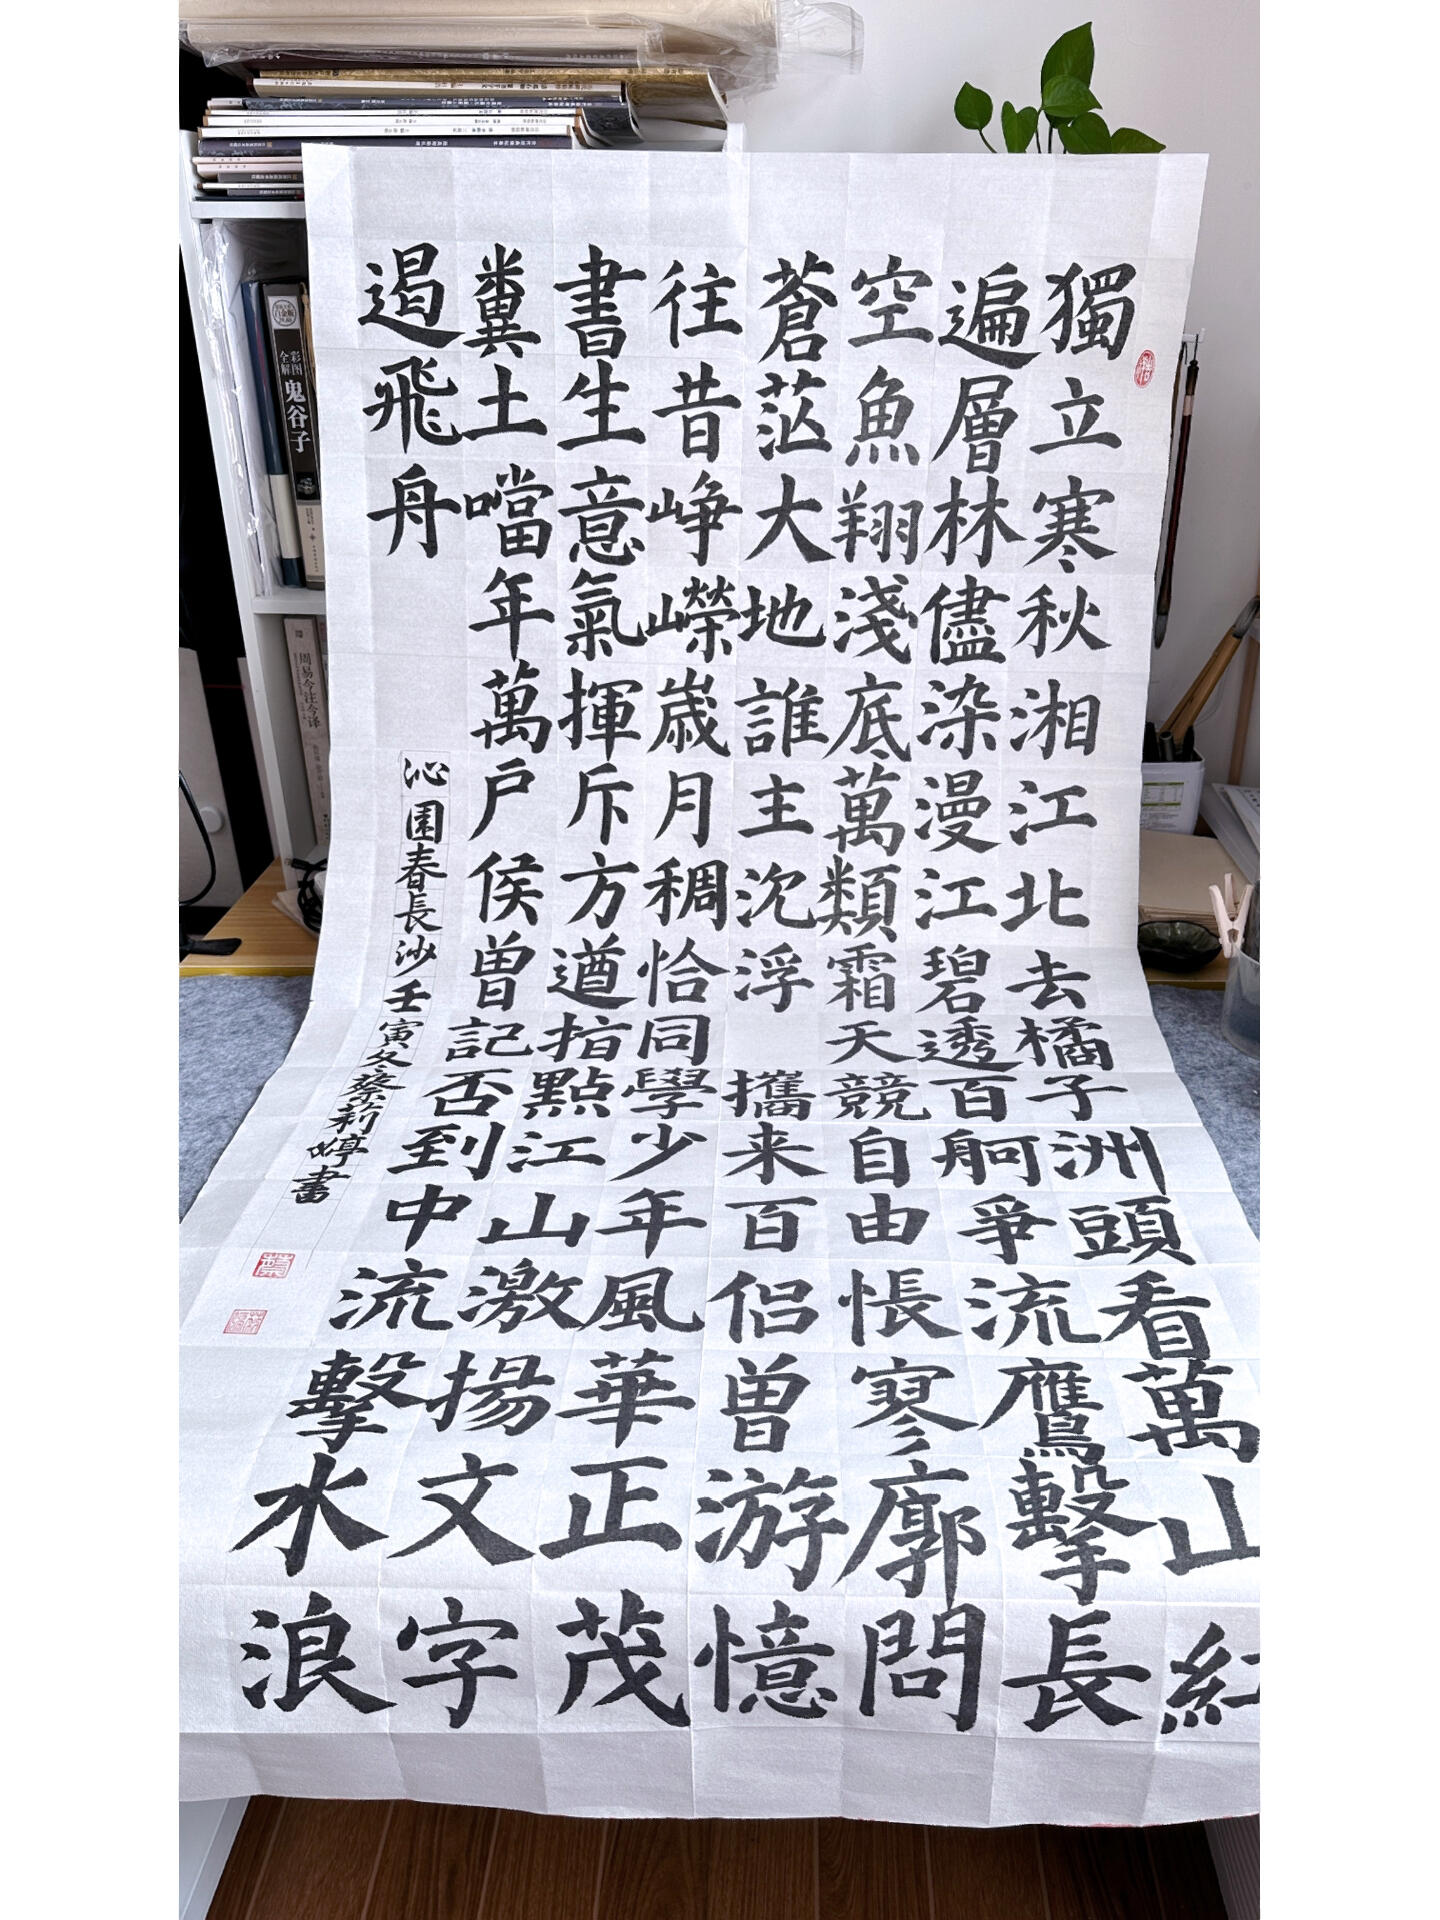 獨立寒秋湘江北去橘子洲頭看萬山紅
遍層林儘染漫江碧透百舸爭流鷹擊長
空魚翔淺底萬類霜天競自由悵寥廓問
蒼茫大地誰主沈浮 攜来百侣曾游憶
往昔峥嶸歲月稠恰同學少年風華正茂
書生意氣揮斥方遒指點江山激揚文字
糞土噹年萬戶侯曾記否到中流擊水浪
遏飛舟
沁園春長沙壬寅冬蔡莉婷書
彩图全解
鬼谷子
周易今注今译